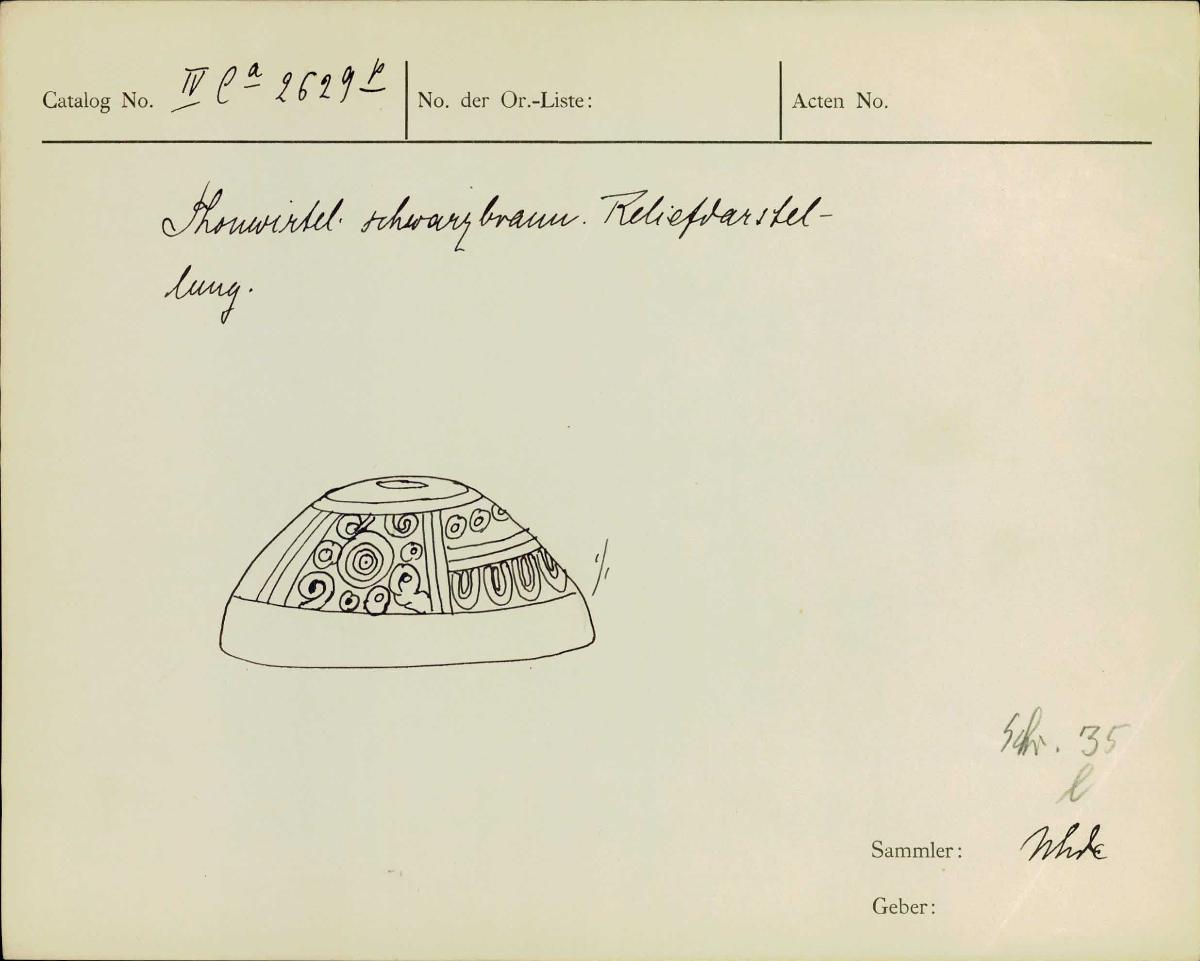 Catalog No. IV Ca 2629 p
No. der Or.-Liste:
Acten No.
Thonwirtel. schwarzbraun. Reliefdarstel-
lung.
1/1
Schr. 35
l
Sammler: Uhde
Geber: